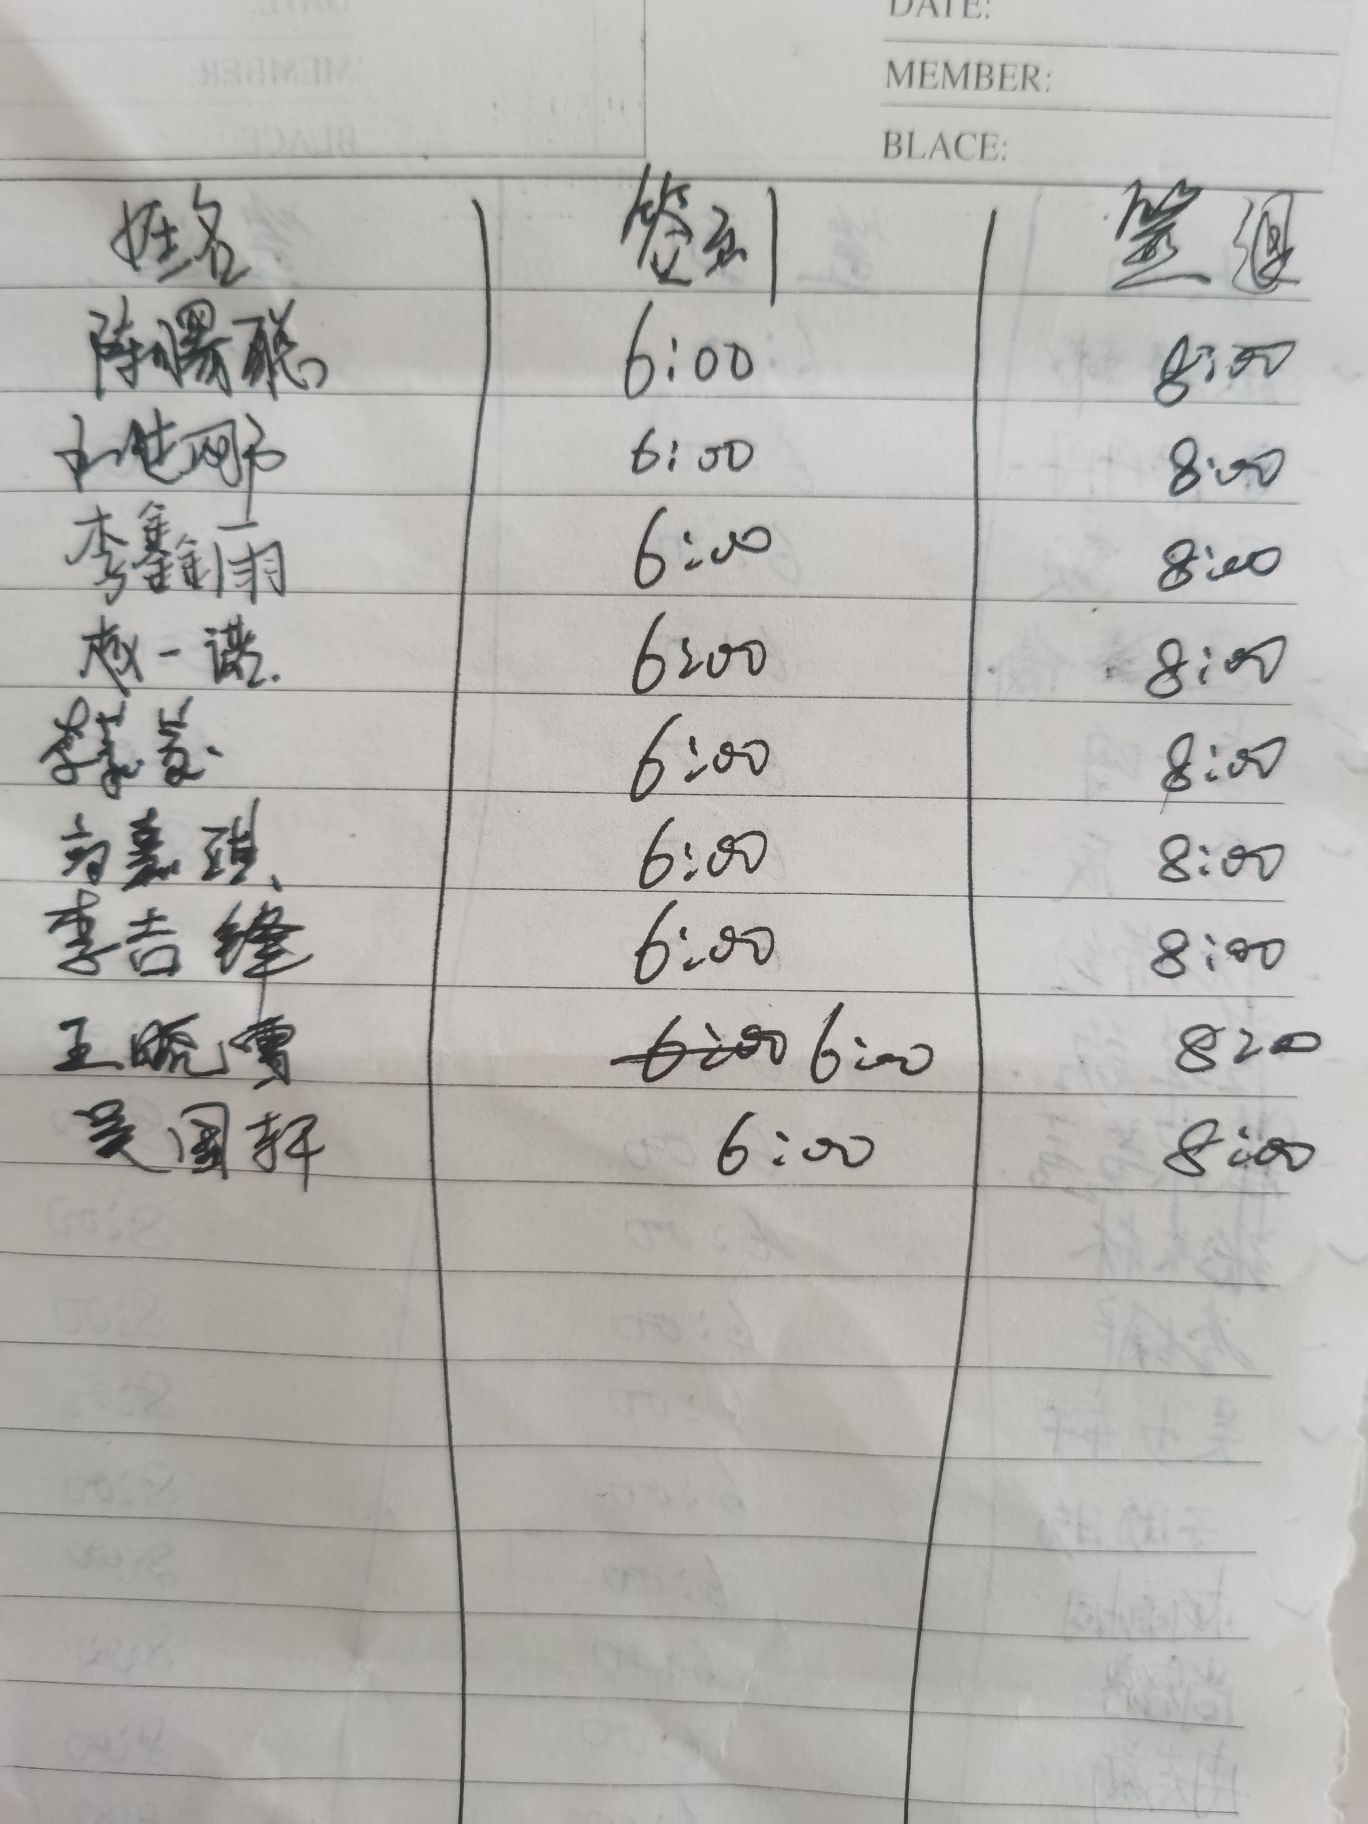 DATE:
MEMBER:
BLACE:
姓名 签到 签退
陈曙聪 6:00 8:00
6:00 8:00
李鑫雨 6:00 8:00
赵一诺 6:00 8:00
6:00 8:00
高嘉琪 6:00 8:00
李吉锋 6:00 8:00
王晓雪 6:00 6:00 8:00
吴国轩 6:00 8:00